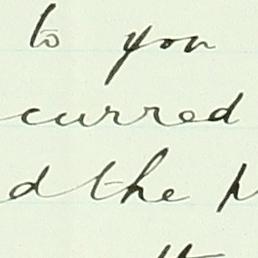 to you
curred
d the